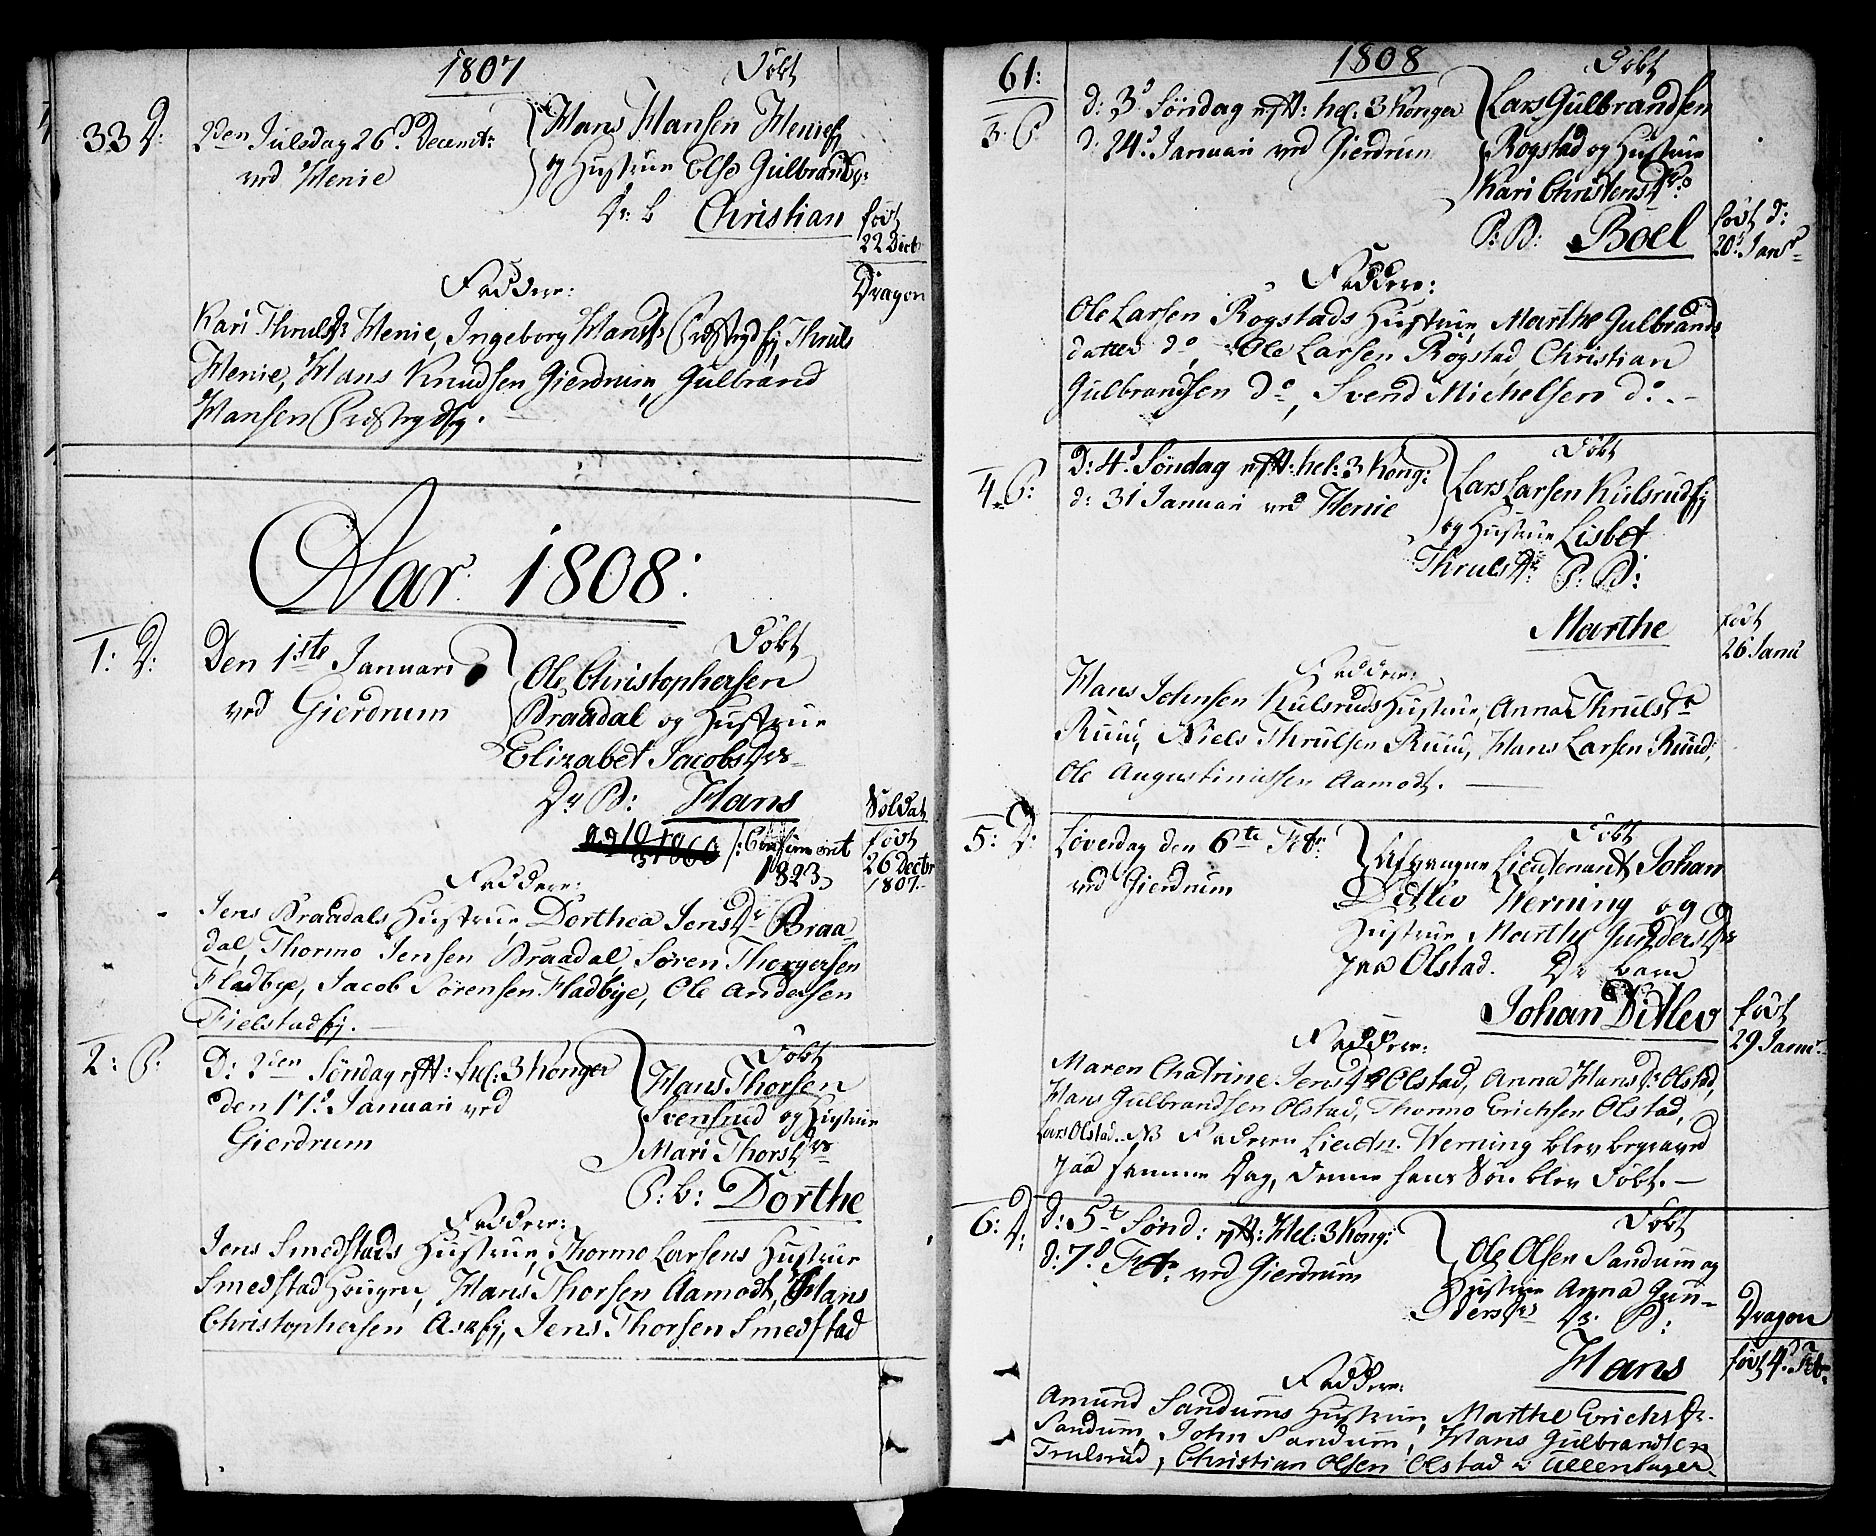 1807
Döbt
33 D:
2den Julsdag 26de Decembr:
ved Henie
Hans Hansen Henieej
og Hustrue Else Gulbrands
Dr: b Christian
født
22 Decbr
Dragon
Faddere:
Kari Thrulsdr Henie, Ingeborg Hansdr Thruls
Henie, Hans Knudsen Gierdrum, Gulbrand
Hansen
Aar 1808:
1: D:
Den 1ste Januari
ved Gierdrum
Döbt
Ole Christophersen
Braadal og Hustrue
Elizabet Jacobsdrs
Dr B: Hans
Soldat
født
26 Decbr
1807
/: Confirmeret
1823
Faddere:
Jens Braadals Hustrue, Dorthea JensDr Braa-
dal, Thormo Jensen Braadal, Søren Thorgersen
Fladbye, Jacob Sørensen Fladbye, Ole Andersen
Fielstadej.
2: P:
D: 2den Søndag efft: hel: 3 Konger
den 17de Januari ved
Gierdrum
Döbt
Hans Thorsen
Svensrud og Hustrue
Mari Thorsdrs
P: b: Dorthe
Faddere:
Jens Smedstads Hustrue, Thormo Larsens Hustrue
Smedstad Hougen, Hans Thorsen Aamodt, Hans
Christophersen Askej, Jens Thorsen Smedstad
61:
1808
3: P
d: 3de Søndag efft: hel: 3 Konger
d: 24de Januari ved Gierdrum
Döbt
Lars Gulbrandsen
Rogstad og Hustrue
Kari Christensdrs
P: B: Boel
født d:
20de Janr
Faddere:
Ole Larsen Rogstads Hustrue, Marthe Gulbrands
datter do, Ole Larsen Rogstad, Christian
Gulbrandsen do, Svend Michelsen do.
4 P:
D: 4de Søndag efft: hel: 3 Kong:
d: 31 Januari ved Henie
Döbt
Lars Larsen Kulsrudej
og Hustrue Lisbet
Thrulsdr: P: B:
Marthe
født
26 Janu
Faddere:
Hans Johnsen Kulsruds Hustrue, Anna Thrulsdr
Ruud, Niels Thrulsen Ruud, Hans Larsen Ruud,
Ole Augustinussen Aamodt.
5: D:
Løverdag den 6te Febr
ved Gierdrum
Döbt
Afgangne Lieutenant Johan
Ditlev Werning og
Hustrue Marthe Gundersdrs
paa Olstad. Dr barn
Johan Ditlev
født
29 Janu
Faddere:
Maren Chatrine JensDr Olstad, Anna Hansdr Olstad,
Hans Gulbrandsen Olstad, Thormo Erichsen Olstad,
Lars Olstad. NB Faderen Lieutn. Werning blev begraved
paa samme Dag, denne hans Søn blev Döbt.
6: D:
d: 5t Sønd: efft: Hel: 3 Kong:
d: 7de Febr ved Gierdrum
Döbt
Ole Olsen Sandum og
Hustrue Anna Gun-
dersdrs Dr: B:
Hans
Dragon
født 4de Febr
Faddere:
Amund Sandums Hustrue, Marthe Erichsdr.
Sandum, John Sandum, Hans Gulbrandsen
Trulsrud, Christian Olsen Olstad